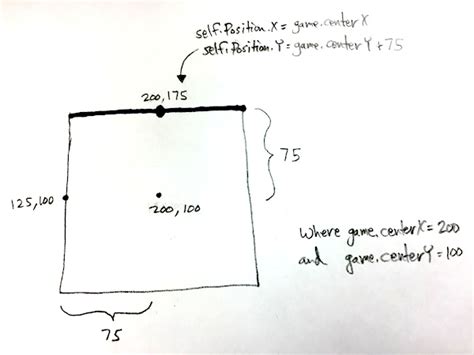 self.Position.X = game.centerX
self.Position.Y = game.centerY + 75
200,175
75
125,100
200,100
where game.centerX = 200
and game.centerY = 100
75